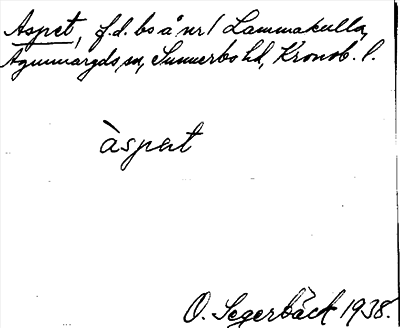 Aspet, f.d. bs å nr 1 Lammakulla,
Agunnaryds sn, Sunnerbo hd, Kronob. l.
àspet
O. Segerbäck 1938.